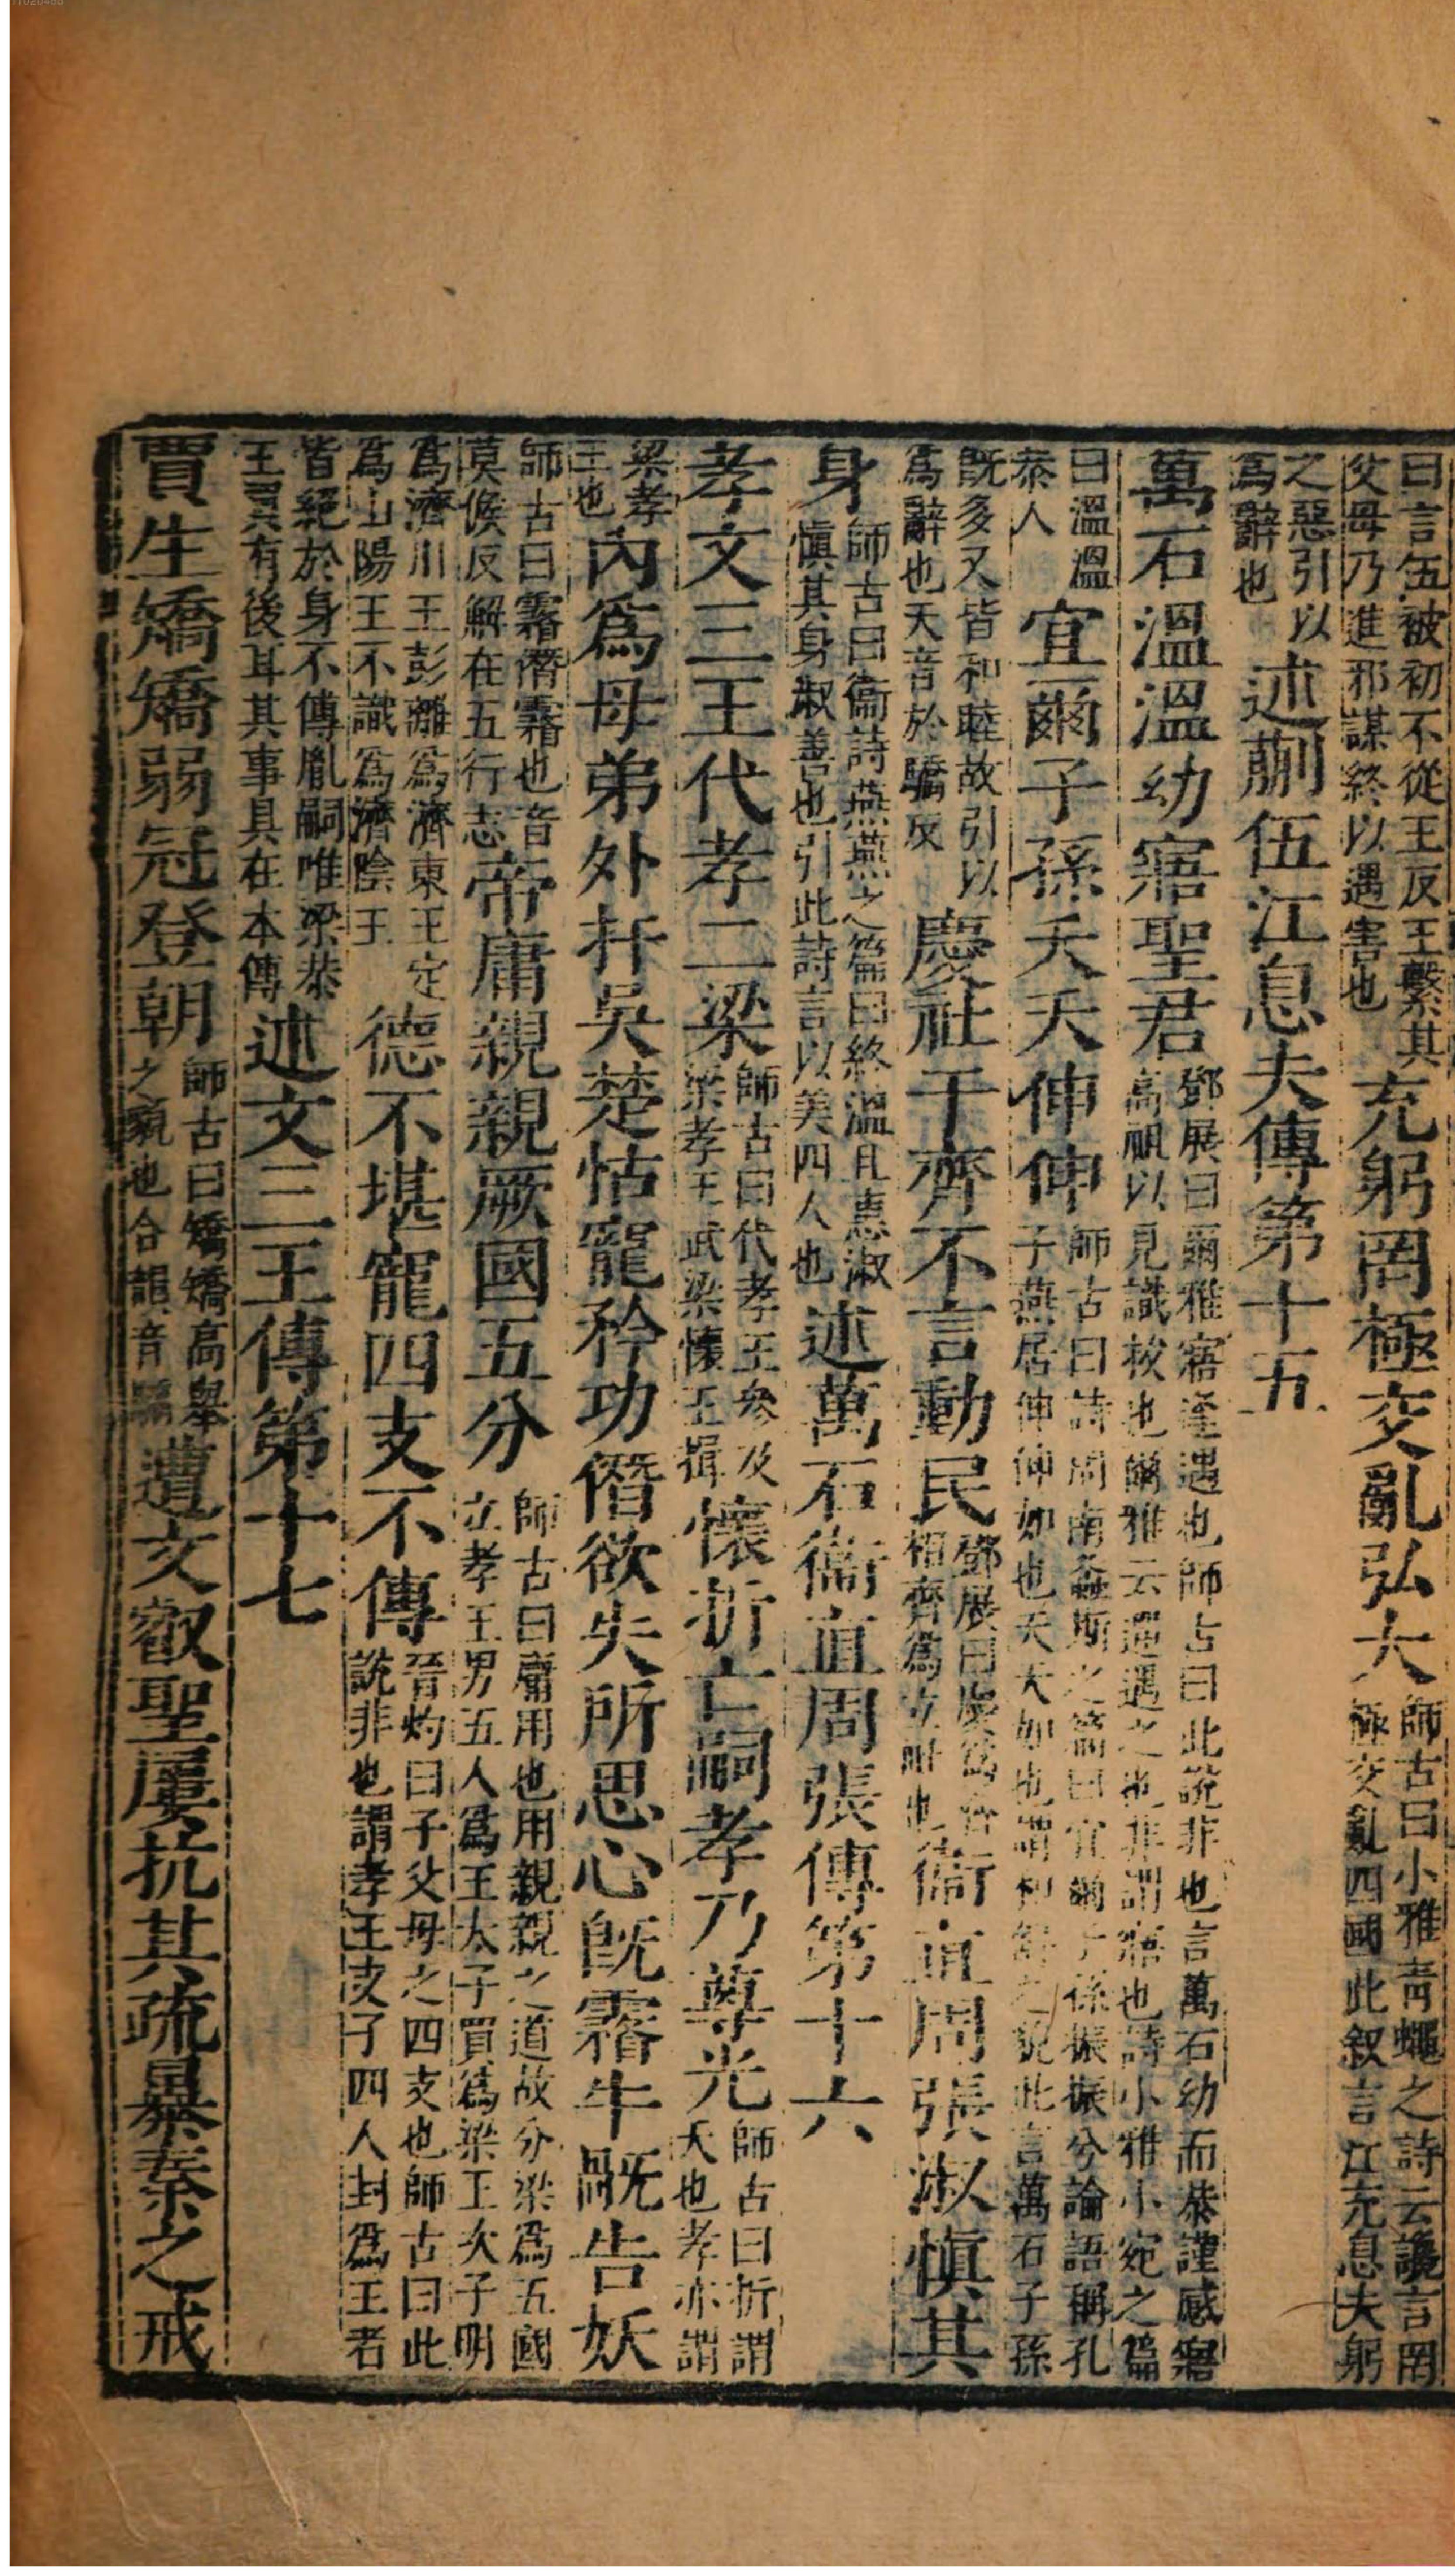 曰言伍被初不從王反王繫其父母乃進邪謀終以遇害也充躬罔極交亂弘大師古曰小雅靑蠅之詩云讒言罔極交亂四國此叙言江充息夫躬
之惡引以爲辭也述蒯伍江息夫傳第十五
萬石溫溫幼寤聖君鄧展曰爾雅寤逢遇也師古曰此說非也言萬石幼而恭謹感寤高祖以見識拔也爾雅云遻遇之也非謂寤也詩小雅小宛之篇
曰溫溫恭人宜爾子孫夭夭伸伸師古曰詩周南螽斯之篇曰宜爾子孫振振兮論語稱孔子燕居伸伸如也夭夭如也謂和舒之貌此言萬石子孫
旣多又皆和睦故引以爲辭也夭音於驕反慶社于齊不言動民鄧展曰慶爲齊相齊爲立社也衞直周張淑愼其
身師古曰衞詩燕燕之篇曰終溫且惠淑愼其身淑善也引此詩言以美四人也述萬石衞直周張傳第十六
孝文三王代孝二梁師古曰代孝王參及梁孝王武梁懷王揖懷折亡嗣孝乃尊光師古曰折謂夭也孝亦謂
梁孝王也內爲母弟外扞吳楚怙寵矜功僭欲失所思心旣霿牛旤告妖
師古曰霿僭霿也音莫候反解在五行志帝庸親親厥國五分師古曰庸用也用親親之道故分梁爲五國立孝王男五人爲王太子買爲梁王次子明
爲濟川王彭離爲濟東王定爲山陽王不識爲濟陰王德不堪寵四支不傳晉灼曰子父母之四支也師古曰此說非也謂孝王支子四人封爲王者
皆絕於身不傳胤嗣唯梁恭王買有後耳其事具在本傳述文三王傳第十七
賈生矯矯弱冠登朝師古曰矯矯高舉之貌也合韻音驕遭文叡聖屢抗其疏暴秦之戒